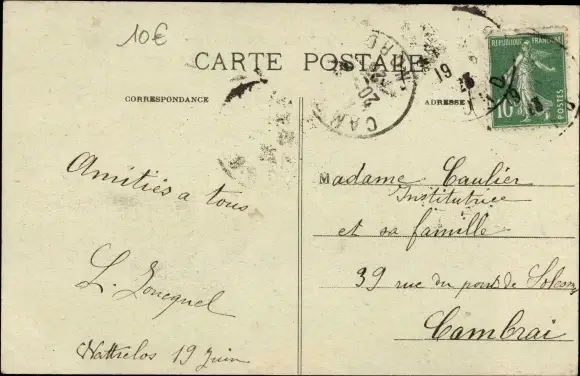 10€
CARTE POSTALE
CORRESPONDANCE
ADRESSE
REPUBLIQUE FRANÇAISE
POSTES
10
19
CAM
20
NORD
Amitiés a tous
L. Joncquel
Wattrelos 19 Juin
Madame Caulier
Institutrice
et sa famille
39 rue du pont de Solesmes
Cambrai